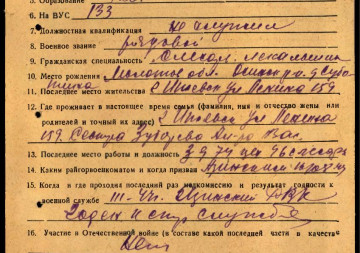 5. Образование
6. На ВУС 133
7. Должностная квалификация не служил
8. Военное звание рядовой
9. Гражданская специальность
10. Место рождения Молотов обл.
11. Последнее место жительства г. Ижевск ул Ленина 159
12. Где проживает в настоящее время семья (фамилия, имя и отчество жены или
родителей и точный их адрес) г Ижевск ул Ленина
159. Сестра Вас.
13. Последнее место работы и должность з-д 74 цех
14. Каким райгорвоенкоматом и когда призван
15. Когда и где проходил последний раз медкомиссию и результат годности к
военной службе РВК
Годен к стр службе
16. Участие в Отечественной войне (в составе какой последней части и в качестве
Нет